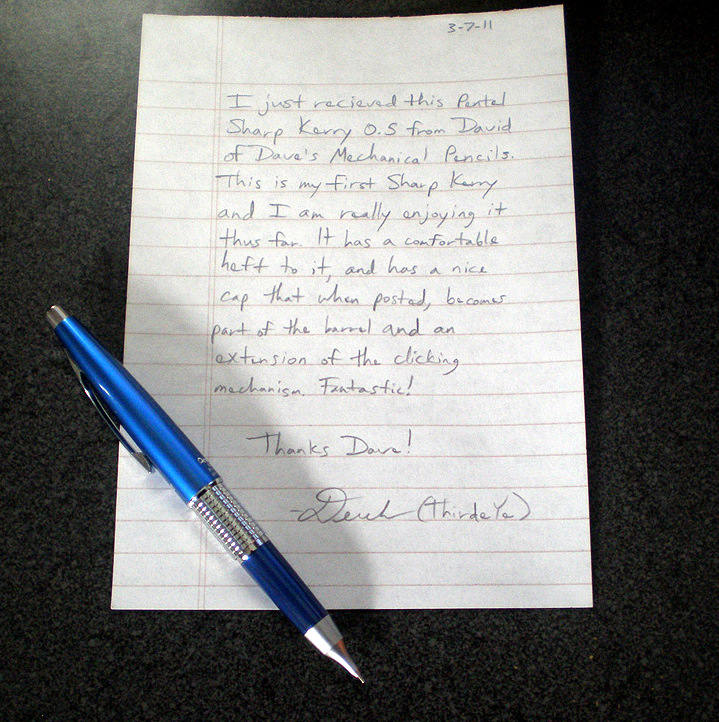 3-7-11
I just recieved this Pentel
Sharp Kerry 0.5 from David
of Dave's Mechanical Pencils.
This is my first Sharp Kerry
and I am really enjoying it
thus far. It has a comfortable
heft to it, and has a nice
cap that when posted, becomes
part of the barrel and an
extension of the clicking
mechanism. Fantastic!
Thanks Dave!
-Derek (ThirdeYe)